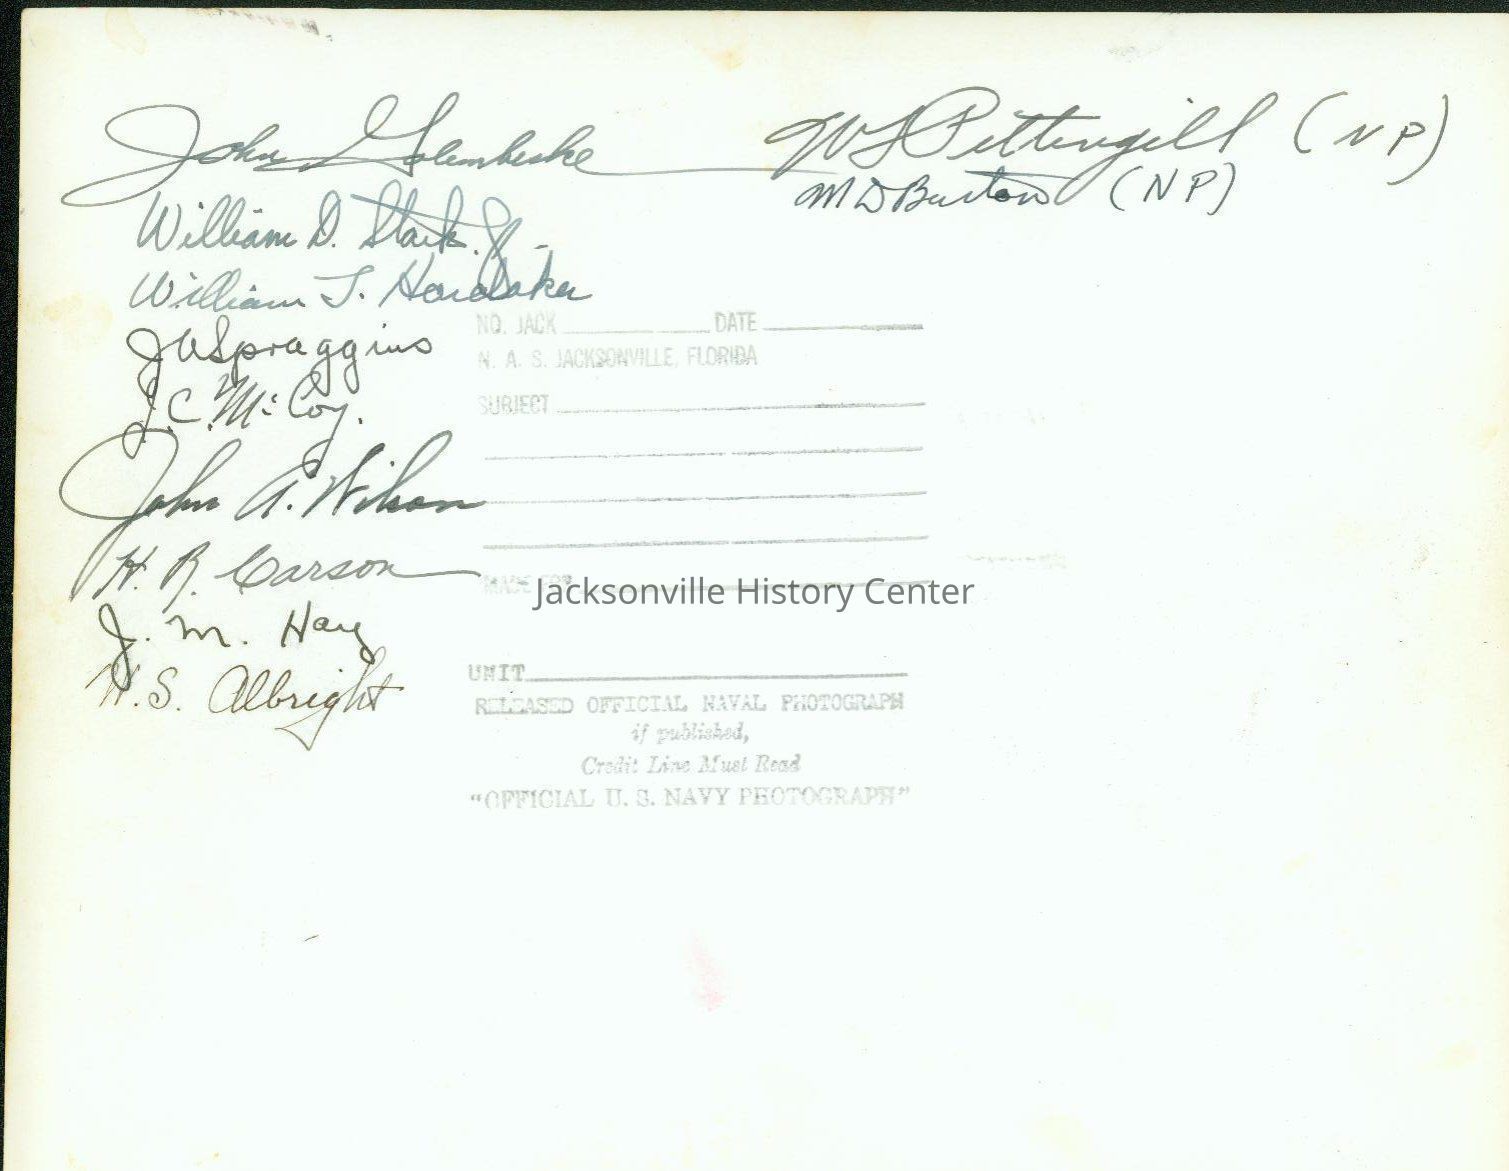 John Golembeske
W L Pettengill (NP)
M D Burton (NP)
William D. Stark. Jr.
William T. Hardaker
J W Spraggins
J. C. McCoy.
John A. Wilson
H. R. Carson
J. M. Hay
W. S. Albright
NO. JACK DATE
N. A. S. JACKSONVILLE, FLORIDA
SUBJECT
MADE FOR
Jacksonville History Center
UNIT
RELEASED OFFICIAL NAVAL PHOTOGRAPH
if published,
Credit Line Must Read
"OFFICIAL U. S. NAVY PHOTOGRAPH"